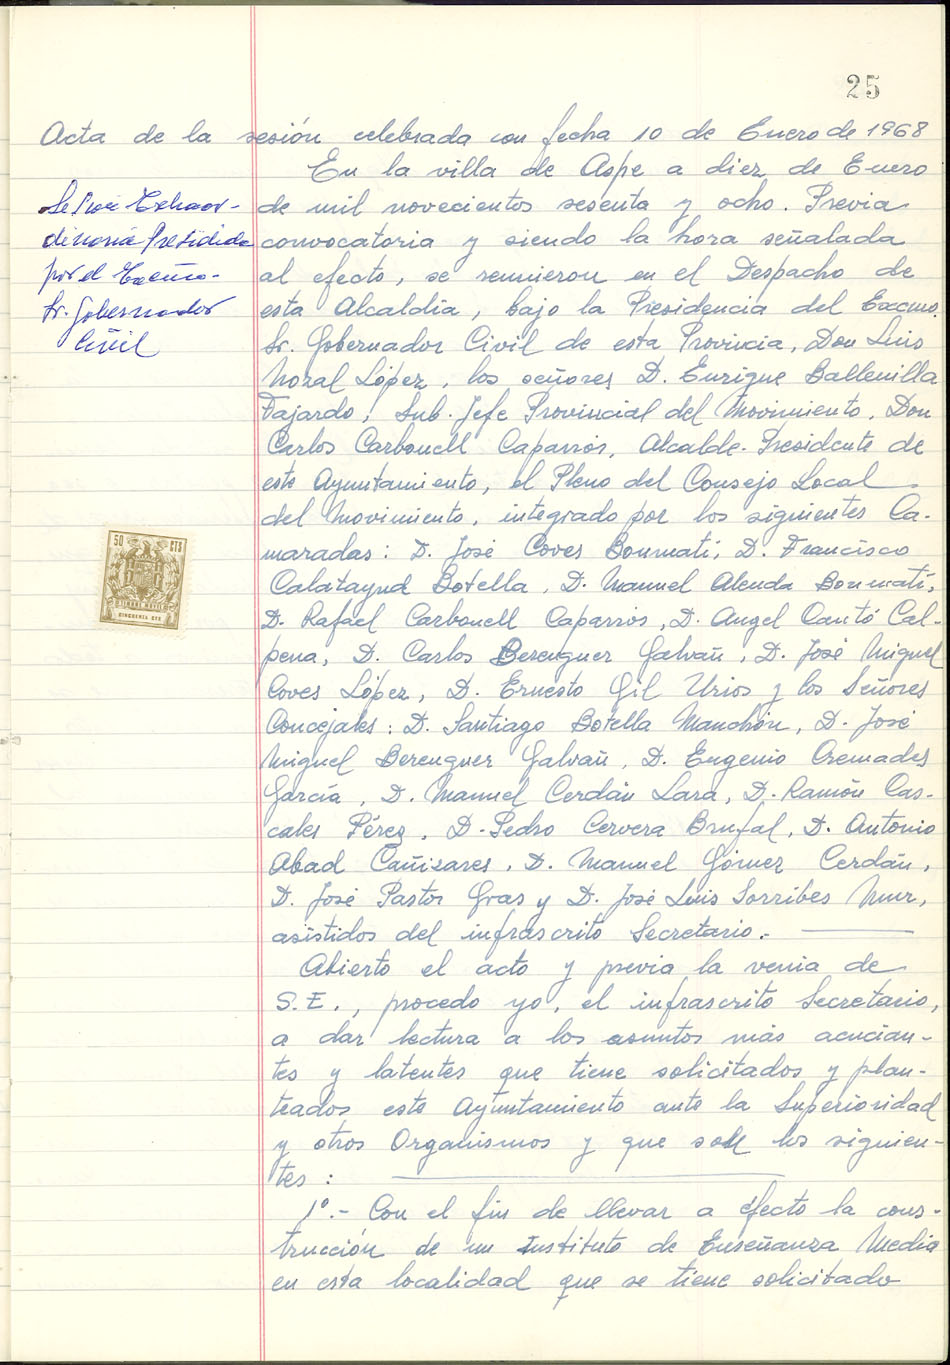 25
Acta de la sesión celebrada con fecha 10 de Enero de 1968
En la villa de Aspe a diez de Enero
de mil novecientos sesenta y ocho. Previa
convocatoria y siendo la hora señalada
al efecto, se reunieron en el Despacho de
esta Alcaldía, bajo la Presidencia del Excmo.
Sr. Gobernador Civil de esta Provincia, Don Luis
Nozal López, los señores D. Enrique Ballenilla
Fajardo, Sub-Jefe Provincial del Movimiento, Don
Carlos Carbonell Caparros, Alcalde-Presidente de
este Ayuntamiento, el Pleno del Consejo Local
del Movimiento, integrado por los siguientes Ca-
maradas: D. José Coves Bonmatí, D. Francisco
Calatayud Botella, D. Manuel Alenda Bonmatí,
D. Rafael Carbonell Caparros, D. Angel Cantó Cal-
pena, D. Carlos Berenguer Galvañ, D. José Miguel
Coves López, D. Ernesto Gil Urios y los Señores
Concejales: D. Santiago Botella Manchón, D. José
Miguel Berenguer Galvañ, D. Eugenio Cremades
García, D. Manuel Cerdán Lara, D. Ramón Cas-
cales Pérez, D. Pedro Cervera Brufal, D. Antonio
Abad Cañizares, D. Manuel Gómez Cerdán,
D. José Pastor Gras y D. José Luis Sorribes Mur,
asistidos del infrascrito Secretario.-
Abierto el acto y previa la venia de
S.E., procedo yo, el infrascrito Secretario,
a dar lectura a los asuntos más acucian-
tes y latentes que tiene solicitados y plan-
teados este Ayuntamiento ante la Superioridad
y otros Organismos y que son los siguien-
tes:
1º.- Con el fin de llevar a efecto la cons-
trucción de un Instituto de Enseñanza Media
en esta localidad que se tiene solicitado
Sesión Extraor-
dinaria presidida
por el Excmo.
Sr. Gobernador
Civil
50 CTS
TIMBRE MOVIL
CINCUENTA CTS